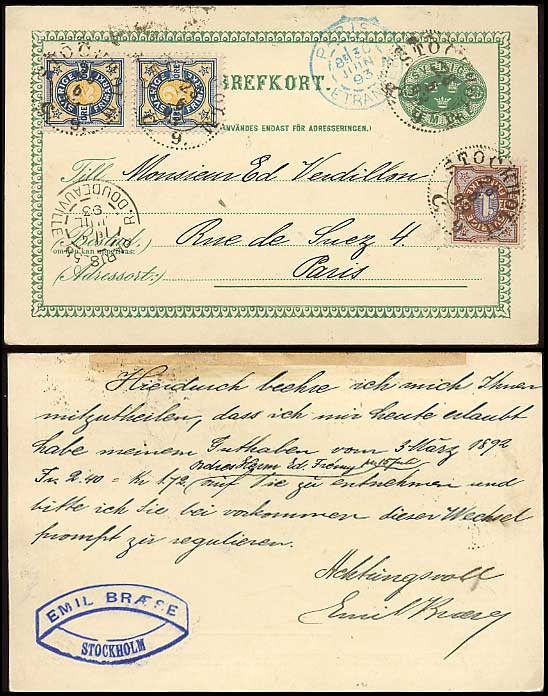 BREFKORT.
(ANVÄNDES ENDAST FÖR ADRESSERINGEN.)
SVERIGE
FRIMÄRKE
SVERIGE
FRIMÄRKE
STOCKHOLM
PARIS
JUIN
93
ETRANGER
Till Monsieur Ed Verdillon
R. DOUDEAUVILLE
93
(Bostad:
om den kan uppgifvas:)
Rue de Suez 4.
(Adressort:)
Paris
Hierdurch beehre ich mich Ihnen
mitzutheilen, dass ich mir heute erlaubt
habe meinem Guthaben vom 3 März 1892
Ordre Herrn Ed. Frémy
Fr. 2.40 = Kr 1.72 auf Sie zu entnehmen und
bitte ich Sie bei vorkommen dieser Wechsel
prompt zu regulieren.
Achtungsvoll
Emil Bræse
EMIL BRÆSE
STOCKHOLM